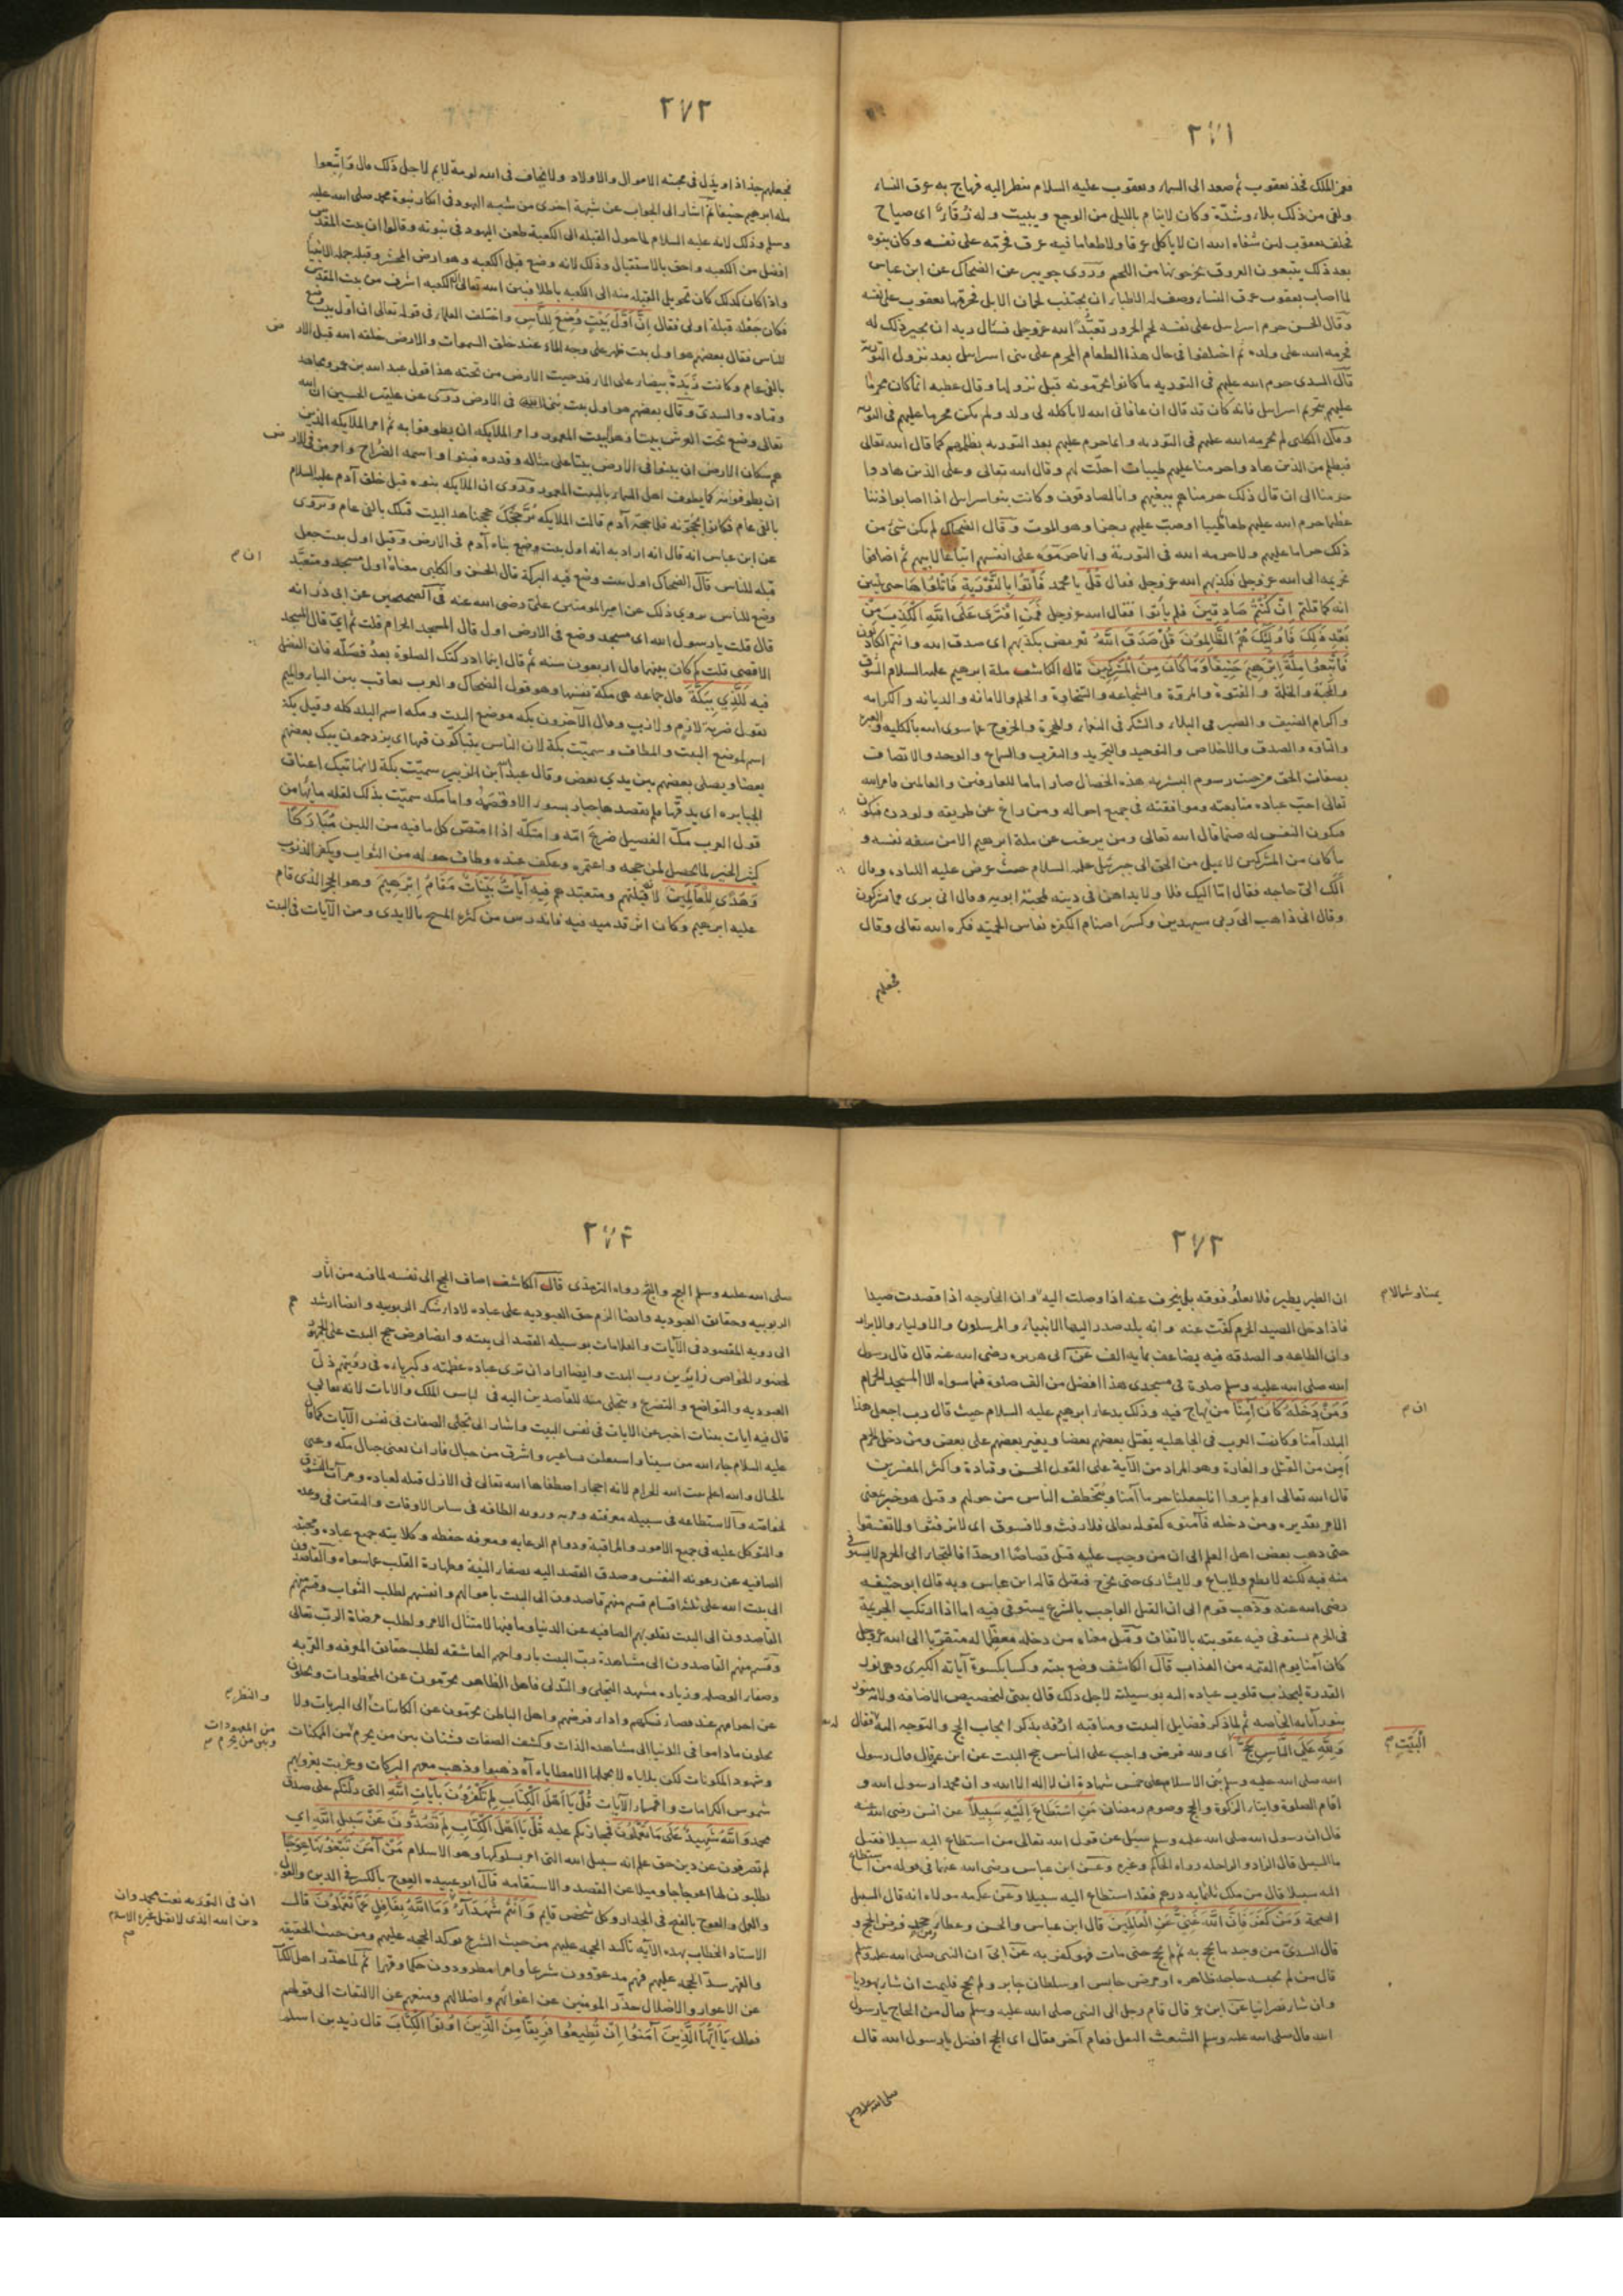 ٢٧١
فغمز الملك فخذ يعقوب ثم صعد الى السماء ويعقوب عليه السلام ينظر اليه فهاج به عرق النساء
ولقى من ذلك بلاء وشدة وكان لا ينام بالليل من الوجع ويبيت وله زقاء اى صياح
فحلف يعقوب لئن شفاه الله ان لا ياكل عرقا ولا طعاما فيه عرق فحرمه على نفسه وكان بنوه
بعد ذلك يتبعون العروق يخرجونها من اللحم وروى جويبر عن الضحاك عن ابن عباس
لما اصاب يعقوب عرق النساء وصف له الاطباء ان يجتنب لحمان الابل فحرمها يعقوب على نفسه
وقال الحسن حرم اسرايل على نفسه لحم الجزور تعبدا لله عز وجل فسال ربه ان يجيز ذلك له
فحرمه الله على ولده ثم اختلفوا فى حال هذا الطعام المحرم على بنى اسرايل بعد نزول التورية
قال السدى حرم الله عليهم فى التورية ما كانوا يحرمونه قبل نزولها وقال عطيه انما كان محرما
عليهم بتحريم اسرايل فانه كان قد قال ان عافانى الله لا ياكله لى ولد ولم يكن محرما عليهم فى التورية
وقال الكلبى لم يحرمه الله عليهم فى التورية وانما حرم عليهم بعد التورية بظلمهم كما قال الله تعالى
فبظلم من الذين هادوا حرمنا عليهم طيبات احلت لهم وقال الله تعالى وعلى الذين هادوا
حرمنا الى ان قال ذلك جزيناهم ببغيهم وانا لصادقون وكانت بنو اسرايل اذا اصابوا ذنبا
عظيما حرم الله عليهم طعاما طيبا او صب عليهم رجزا وهو الموت وقال الضحاك لم يكن شئ من
ذلك حراما عليهم ولا حرمه الله فى التورية وانما حرموه على انفسهم اتباعا لابيهم ثم اضافوا
تحريمه الى الله عز وجل فكذبهم الله عز وجل فقال قُلْ يا محمد فَأْتُوا بِالتَّوْرَيةِ فَاتْلُوهَا حتى يتبين
انه كما قلتم اِنْ كُنْتُمْ صَادِقِينَ فلم ياتوا فقال الله عز وجل فَمَنِ افْتَرَى عَلَى اللهِ الْكَذِبَ مِنْ
بَعْدِ ذَلِكَ فَأُولَئِكَ هُمُ الظَّالِمُونَ قُلْ صَدَقَ اللهُ تعريض بكذبهم اى صدق الله وانتم الكاذبون
فَاتَّبِعُوا مِلَّةَ اِبْرَهِيمَ حَنِيفًا وَمَا كَانَ مِنَ الْمُشْرِكِينَ قال الكاشف ملة ابرهيم عليه السلام الشوق
والمحبة والخلة والفتوة والمروة والشجاعه والسخاوة والحلم والامانه والديانه والكرامه
واكرام الضيف والصبر فى البلاء والشكر فى النعماء والهجرة والخروج عما سوى الله بالكليه
والصدق والاخلاص والتوحيد والتجريد والتقريب والسماع والوجد والاتصاف
بصفات الحق فرجت رسوم البشريه هذه الخصال صار اماما للعارفين والعالمين فامر الله
تعالى احب عباده متابعته وموافقته فى جميع احواله ومن راغ عن طريقه
فيكون النفس له صنما قال الله تعالى ومن يرغب عن ملة ابرهيم الا من سفه نفسه و
ما كان من المشركين لا يميل من الحق الى جبرئيل عليه السلام حيث عرض عليه وقال
ألك الى حاجه فقال اما اليك فلا ولا يداهن فى دينه لمحبة ابويه وقال انى برى مما تشركون
وقال انى ذاهب الى ربى سيهدين وكسر اصنام الكفرة فذكره الله تعالى وقال
فجعلهم
٢٧٢
فجعلهم جذاذا وبذل فى محبته الاموال والاولاد ولا يخاف فى الله لومة لايم لاجل ذلك قال فَاتَّبِعوا
ملة ابرهيم حنيفا ثم اشار الى الجواب عن شبهة اخرى من شبه اليهود فى انكار نبوة محمد صلى الله عليه
وسلم وذلك لانه عليه السلام لما حول القبله الى الكعبة طعن اليهود فى نبوته وقالوا ان بيت المقدس
افضل من الكعبه واحق بالاستقبال وذلك لانه وضع قبل الكعبه وهو ارض المحشر وقبلة جملة الانبيا
واذا كان كذلك كان تحويل القبلة منه الى الكعبه باطلا فبين الله تعالى ان الكعبه اشرف من بيت المقدس
فكان جعله قبلة اولى فقال اِنَّ اَوَّلَ بَيْتٍ وُضِعَ لِلنَّاسِ واختلف العلماء فى قوله تعالى ان اول بيت وضع
للناس فقال بعضهم هو اول بيت ظهر على وجه الماء عند خلق السموات والارض خلقه الله قبل الارض
بالفى عام وكانت زبدة بيضاء على الماء فدحيت الارض من تحته هذا قول عبد الله بن عمر ومجاهد
وقتاده والسدى وقال بعضهم هو اول بيت بنى لله فى الارض روى عن على بن الحسين ان الله
تعالى وضع تحت العرش بيتا وهو البيت المعمور وامر الملايكه ان يطوفوا به ثم امر الملايكة الذين
هم سكان الارض ان يبنوا فى الارض بيتا على مثاله وقدره فبنوا واسمه الضراح وامر من فى الارض
ان يطوفوا به كما يطوف اهل السماء بالبيت المعمور وروى ان الملايكه بنوه قبل خلق آدم عليه السلام
بالفى عام فكانوا يحجونه فلما حجه آدم قالت الملايكه بُرَّ حَجُّكَ حججنا هذا البيت قبلك بالفى عام ويروى
عن ابن عباس انه قال انه اراد به انه اول بيت وضع بناه آدم فى الارض وقيل اول بيت جعل
قبلة للناس قال الضحاك اول بيت وضع فيه البركة قال الحسن والكلبى معناه اول مسجد ومتعبد
وضع للناس روى ذلك عن امير المومنين على رضى الله عنه فى الصحيحين عن ابى ذر انه
قال قلت يا رسول الله اى مسجد وضع فى الارض اول قال المسجد الحرام قلت ثم اى قال المسجد
الاقصى قلت كم كان بينهما قال اربعون سنه ثم قال اينما ادركتك الصلوة بعدُ فصَلّه فان الفضل
فيه لَلَّذِي بِبَكَّةَ قال جماعه هى مكة نفسها وهو قول الضحاك والعرب تعاقب بين الباء والميم
تقول ضربة لازم ولازب وقال الآخرون بكه موضع البيت ومكه اسم البلد كله وقيل بكة
اسم لموضع البيت والمطاف وسميت بكة لان الناس يتباكون فيها اى يزدحمون يبك بعضهم
بعضا ويصلى بعضهم بين يدي بعض وقال عبد الله بن الزبير سميت بكة لانها تبك اعناق
الجبابرة اى يدقها فلم يقصدها جبار بسوء الا وقصمه واما مكه سميت بذلك لقلة مائها من
قول العرب مك الفصيل ضرع امه وامتكه اذا امتص كل ما فيه من اللبن مُبَارَكًا
كثير الخير لما يحصل لمن حجه واعتمره وعكف عنده وطاف حوله من الثواب ويكفر الذنوب
وَهُدًى لِلْعَالَمِينَ لانه قبلتهم ومتعبدهم فِيهِ آيَاتٌ بَيِّنَاتٌ مَقَامُ اِبْرَهِيمَ وهو الحجر الذى قام
عليه ابرهيم وكان اثر قدميه فيه فاندرس من كثرة المسح بالايدى ومن الآيات فى البيت
٢٧٣
ان الطير يطير فلا يعلو فوقه بل ينحرف عنه اذا وصلت اليه وان الجارحه اذا قصدت صيدا
فاذا دخل الصيد الحرم كفت عنه وانه بلد صدر اليها الانبياء والمرسلون والاولياء والابرار
وان الطاعه والصدقه فيه يضاعف بمايه الف عن ابى هريره رضى الله عنه قال قال رسول
الله صلى الله عليه وسلم صلوة فى مسجدى هذا افضل من الف صلوة فيما سواه الا المسجد الحرام
وَمَنْ دَخَلَهُ كَانَ آمِنًا من يهاج فيه وذلك بدعاء ابرهيم عليه السلام حيث قال رب اجعل هذا
البلد آمنا وكانت العرب فى الجاهليه يقتل بعضهم بعضا ويغير بعضهم على بعض ومن دخل الحرم
أمن من القتل والغارة وهو المراد من الآية على القول الحسن وقتادة واكثر المفسرين
قال الله تعالى اولم يروا انا جعلنا حرما آمنا ويتخطف الناس من حولهم وقيل هو خبر بمعنى
الامر تقديره ومن دخله فآمنوه كقوله تعالى فلا رفث ولا فسوق اى لا ترفثوا ولا تفسقوا
حتى ذهب بعض اهل العلم الى ان من وجب عليه قتل قصاصا او حدا فالتجاء الى الحرم لا يستوفى
منه فيه لكنه لا يطعم ولا يباع ولا يشارى حتى يخرج فيقتل قاله ابن عباس وبه قال ابو حنيفه
رضى الله عنه وذهب قوم الى ان القتل الواجب بالشرع يستوفى فيه اما اذا ارتكب الجريمة
فى الحرم يستوفى فيه عقوبته بالاتفاق وقيل معناه من دخله معظما له متقربا الى الله عز وجل
كان آمنا يوم القيمه من العذاب قال الكاشف وضع بيته وكساه بكسوة آياته الكبرى
القدرة ليجذب قلوب عباده اليه بوسيلته لاجل ذلك قال بيتى لتخصيص الاضافه ولانه منور
بنور آياته الخاصه ثم لما ذكر فضايل البيت ومناقبه اردفه بذكر ايجاب الحج والتوجه اليه فقال
وَلِلّهِ عَلَى النَّاسِ حِجُّ اى ولله فرض واجب على الناس حج البيت عن ابن عمر قال قال رسول
الله صلى الله عليه وسلم بنى الاسلام على خمس شهادة ان لا اله الا الله وان محمدا رسول الله و
اقام الصلوة وايتاء الزكوة والحج وصوم رمضان مَنِ اسْتَطَاعَ اِلَيْهِ سَبِيلًا عن انس رضى الله عنه
قال ان رسول الله صلى الله عليه وسلم سئل عن قول الله تعالى من استطاع اليه سبيلا فقيل
ما السبيل قال الزاد والراحله رواه الحاكم وغيره وعن ابن عباس رضى الله عنهما فى قوله من استطاع
اليه سبيلا قال من ملك ثلثمايه درهم فقد استطاع اليه سبيلا وعن عكرمه مولاه انه قال السبيل
الصحة وَمَنْ كَفَرَ فَاِنَّ اللهَ غَنِيٌّ عَنِ الْعَالَمِينَ قال ابن عباس والحسن وعطاء ومن جحد فرض الحج و
قال السدى من وجد ما يحج به ثم لم يحج حتى مات فهو كفر به عن ابى ان النبى صلى الله عليه وسلم
قال من لم يحبسه حاجه ظاهرة او مرض حابس او سلطان جاير ولم يحج فليمت ان شاء يهوديا
وان شاء نصرانيا عن ابن عمر قال قام رجل الى النبى صلى الله عليه وسلم فقال من الحاج يا رسول
الله قال صلى الله عليه وسلم الشعث التفل فقام آخر فقال اى الحج افضل يا رسول الله قال
يمينا وشمالا م
ان م
الْبَيْتِ م
صلى الله عليه وسلم
٢٧٤
صلى الله عليه وسلم العج والثج رواه الترمذى قال الكاشف اضاف الحج الى نفسه لما فيه من آثار
الربوبيه وحقايق العبوديه وايضا الزم حق العبوديه على عباده لاداء شكر الربوبيه وايضا ارشدهم
الى رويه المقصود فى الآيات والعلامات بوسيله القصد الى بيته وايضا فرض حج البيت على
لحضور الخواص زايرين رب البيت وايضا اراد ان يرى عباده عظمته وكبرياءه فى رؤيتهم ذل
العبوديه والتواضع والتضرع ويتجلى منه للقاصدين اليه فى لباس الملك والآيات لانه تعالى
قال فيه ايات بينات اخبر عن الآيات فى نفس البيت واشار الى تجلى الصفات فى نفس الآيات كما قال
عليه السلام جاء الله من سينا واستعلن بساعير واشرق من جبال فاران يعنى جبال مكه
والله اعلم بيت الله الحرام لانه احجار اصطفاها الله تعالى فى الازل قبلة لعباده ومرآت
لخواصه والاستطاعه فى سبيله معرفته ورويه الطافه فى ساير الاوقات واليقين فى وعده
والتوكل عليه فى جميع الامور والمراقبة ودوام الرعايه ومعرفه حفظه وكلايته جميع عباده ومحبته
الصافيه عن رعونه النفس وصدق القصد اليه بصفاء النية وطهارة القلب عما سواه والقاصدون
الى بيت الله على ثلثة اقسام قسم منهم قاصدون الى البيت باموالهم وانفسهم لطلب الثواب وقسم منهم
القاصدون الى البيت بقلوبهم الصافيه عن الدنيا وما فيها لامتثال الامر ولطلب مرضاة الرب تعالى
وقسم منهم القاصدون الى مشاهدة رب البيت بارواحهم العاشقه لطلب حقايق المعرفه والقربه
وصفاء الوصله وزياده مشهد التجلى والتدلى فاهل الظاهر يحرمون عن المحظورات ويحلون
عن احرامهم عند قضاء نسكهم واداء فرضهم واهل الباطن يحرمون عن الكاينات الى البريات ولا
يحلون ما داموا فى الدنيا الى مشاهده الذات وكشف الصفات فشتان بين من يحرم من الممكنات
وشهود المكونات لكن بلاياه لا يحملها الا مطاياه آه ذهبوا وذهب معهم البركات وغربت بغروبهم
شموس الكرامات واقمار الآيات قُلْ يَا اَهْلَ الْكِتَابِ لِمَ تَكْفُرُونَ بِآيَاتِ اللهِ التى دلتكم على صدق
محمد وَاللهُ شَهِيدٌ عَلَى مَا تَعْمَلُونَ فيجازيكم عليه قُلْ يَا اَهْلَ الْكِتَابِ لِمَ تَصُدُّونَ عَنْ سَبِيلِ اللهِ اى
لم تصرفون عن دين حق علم انه سبيل الله التى امر بسلوكها وهو الاسلام مَنْ آمَنَ تَبْغُونَهَا عِوَجًا
تطلبون لها اعوجاجا وميلا عن القصد والاستقامه قال ابو عبيده العوج بالكسر فى الدين والقول
والعمل والعوج بالفتح فى الجدار وكل شخص قايم وَاَنْتُمْ شُهَدَاءُ وَمَا اللهُ بِغَافِلٍ عَمَّا تَعْمَلُونَ قال
الاستاد الخطاب بهذه الآيه تاكيد الحجه عليهم من حيث الشرع يوكد الحجه عليهم ومن حيث الحقيقه
والقهر سد الحجه عليهم فهم مدعوون شرعا وامرا مطرودون حكما وقهرا ثم لما حذر اهل الكتاب
عن الاغواء والاضلال حذر المومنين عن اغوائهم واضلالهم ومنعهم عن الالتفات الى قولهم
فقال يَا اَيُّهَا الَّذِينَ آمَنُوا اِنْ تُطِيعُوا فَرِيقًا مِنَ الَّذِينَ اُوتُوا الْكِتَابَ قال زيد بن اسلم
والنظر م
من المعهودات
وبين من يحرم م
ان فى التورية نعت محمد وان
دين الله الذى لا يقبل غيره الاسلام
م